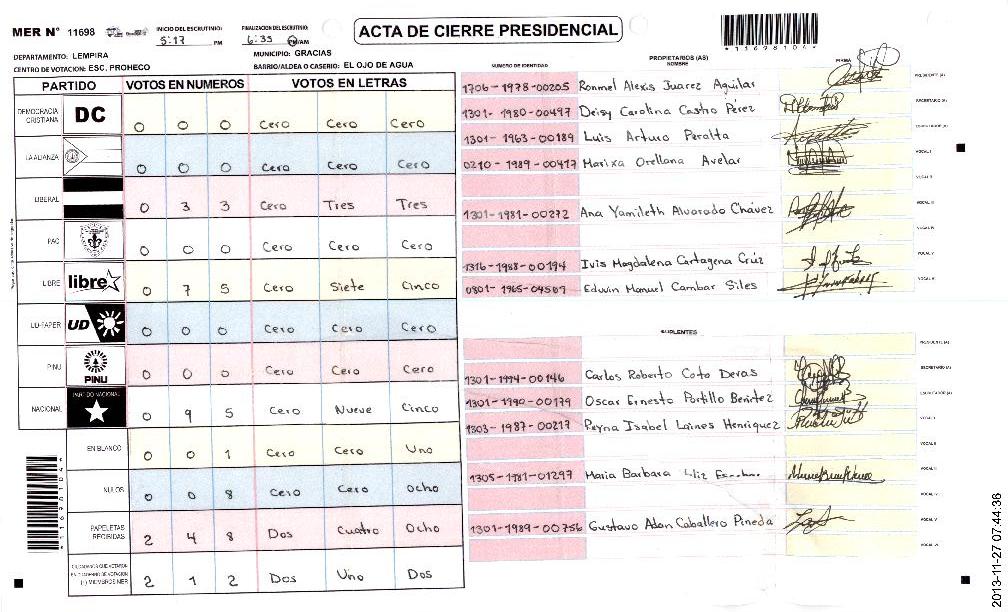 MER Nº 11698
INICIO DEL ESCRUTINIO:
5:17 PM
FINALIZACION DEL ESCRUTINIO:
6:35 PM/AM
ACTA DE CIERRE PRESIDENCIAL
*11698104*
DEPARTAMENTO: LEMPIRA
MUNICIPIO: GRACIAS
CENTRO DE VOTACION: ESC. PROHECO
BARRIO/ALDEA O CASERIO: EL OJO DE AGUA
PARTIDO VOTOS EN NUMEROS VOTOS EN LETRAS
DEMOCRACIA CRISTIANA DC 0 0 0 Cero Cero Cero
LA ALIANZA 0 0 0 Cero Cero Cero
LIBERAL 0 3 3 Cero Tres Tres
PAC 0 0 0 Cero Cero Cero
LIBRE libre 0 7 5 Cero Siete Cinco
UD-FAPER UD 0 0 0 Cero Cero Cero
PINU PINU 0 0 0 Cero Cero Cero
NACIONAL PARTIDO NACIONAL 0 9 5 Cero Nueve Cinco
EN BLANCO 0 0 1 Cero Cero Uno
NULOS 0 0 8 Cero Cero Ocho
PAPELETAS RECIBIDAS 2 4 8 Dos Cuatro Ocho
CIUDADANOS QUE VOTARON EN CUADERNO DE VOTACION (+) MIEMBROS MER 2 1 2 Dos Uno Dos
NUMERO DE IDENTIDAD PROPIETARIOS (AS) NOMBRE FIRMA
1706-1978-00205 Ronmel Alexis Juarez Aguilar PRESIDENTE (A)
1301-1980-00497 Deisy Carolina Castro Pérez SECRETARIO (A)
1301-1963-00189 Luis Arturo Peralta ESCRUTADOR (A)
0210-1989-00417 Marixa Orellana Avelar VOCAL I
VOCAL II
1301-1981-00272 Ana Yamileth Alvarado Chávez VOCAL III
VOCAL IV
1316-1988-00194 Ivis Magdalena Cartagena Cruz VOCAL V
0801-1965-04507 Edwin Manuel Cambar Siles VOCAL VI
SUPLENTES
PRESIDENTE (A)
1301-1994-00146 Carlos Roberto Coto Deras SECRETARIO (A)
1301-1990-00179 Oscar Ernesto Portillo Benitez ESCRUTADOR (A)
1303-1987-00217 Reyna Isabel Laines Henriquez VOCAL I
VOCAL II
1305-1981-01297 Maria Barbara VOCAL III
VOCAL IV
1301-1989-00756 Gustavo Adan Caballero Pineda VOCAL V
VOCAL VI
2013-11-27 07:44:36